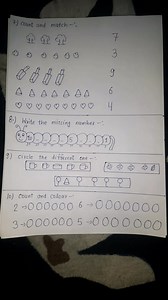 7) Count and match -:
7
3
9
6
4
8) Write the missing number -:
9) Circle the different one -:
10) Count and colour -:
2 → 6 →
3 → 5 →